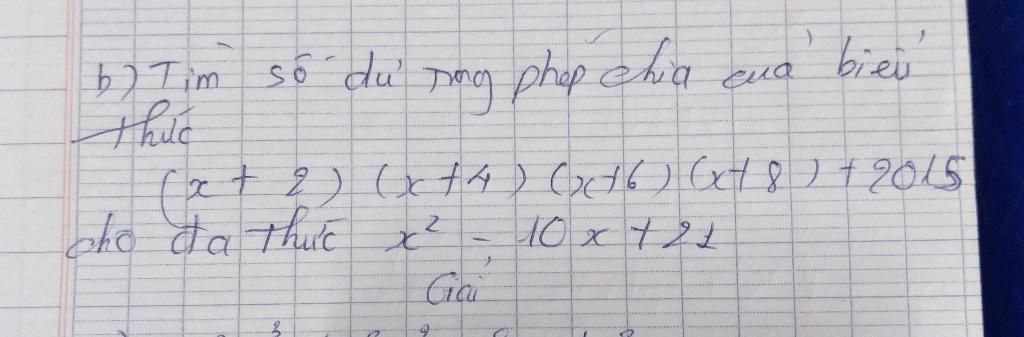 b) Tìm số dư trong phép chia của biểu
thức
(x + 2) (x + 4) (x + 6) (x + 8) + 2015
cho đa thức x² - 10x + 21
Giải